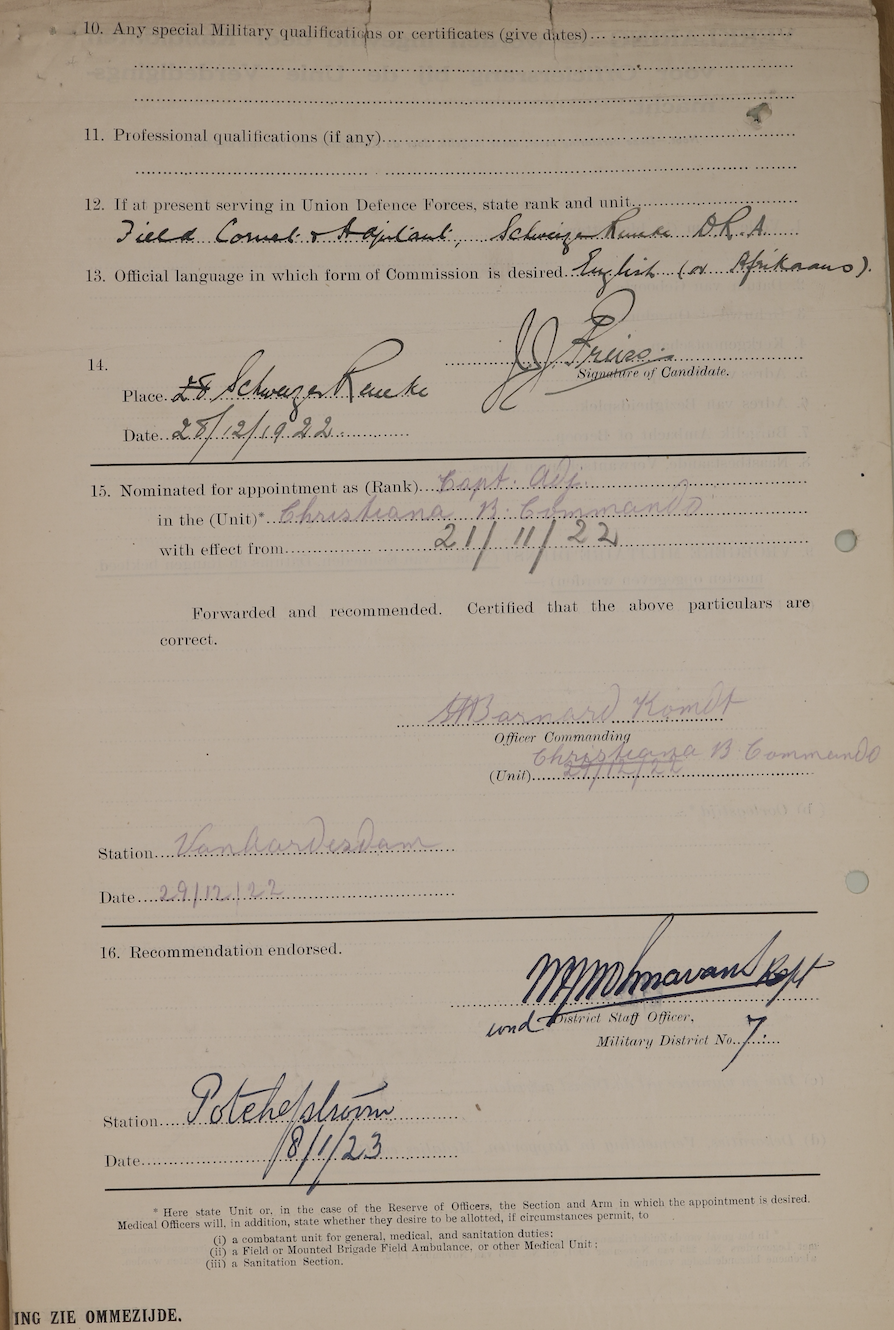 10. Any special Military qualifications or certificates (give dates)
11. Professional qualifications (if any)
12. If at present serving in Union Defence Forces, state rank and unit
Field Cornet & Adjutant, Schweizer Reneke D.R.A
13. Official language in which form of Commission is desired English (or Afrikaans).
14.
JJ Preiss
Signature of Candidate.
Place. 28 Schweizer Reneke
Date 28/12/1922
15. Nominated for appointment as (Rank) Capt. Adj.
in the (Unit)* Christiana B. Commando
with effect from 21/11/22
Forwarded and recommended. Certified that the above particulars are
correct.
Barnard Komdt
Officer Commanding
Christiana B Commando
(Unit) 29/12/22
Station
Date 29/12/22
16. Recommendation endorsed.
Kapt
wnd District Staff Officer,
Military District No. 7.
Station Potchefstroom
Date 8/1/23
* Here state Unit or, in the case of the Reserve of Officers, the Section and Arm in which the appointment is desired.
Medical Officers will, in addition, state whether they desire to be allotted, if circumstances permit, to
(i) a combatant unit for general, medical, and sanitation duties;
(ii) a Field or Mounted Brigade Field Ambulance, or other Medical Unit;
(iii) a Sanitation Section.
ING ZIE OMMEZIJDE.